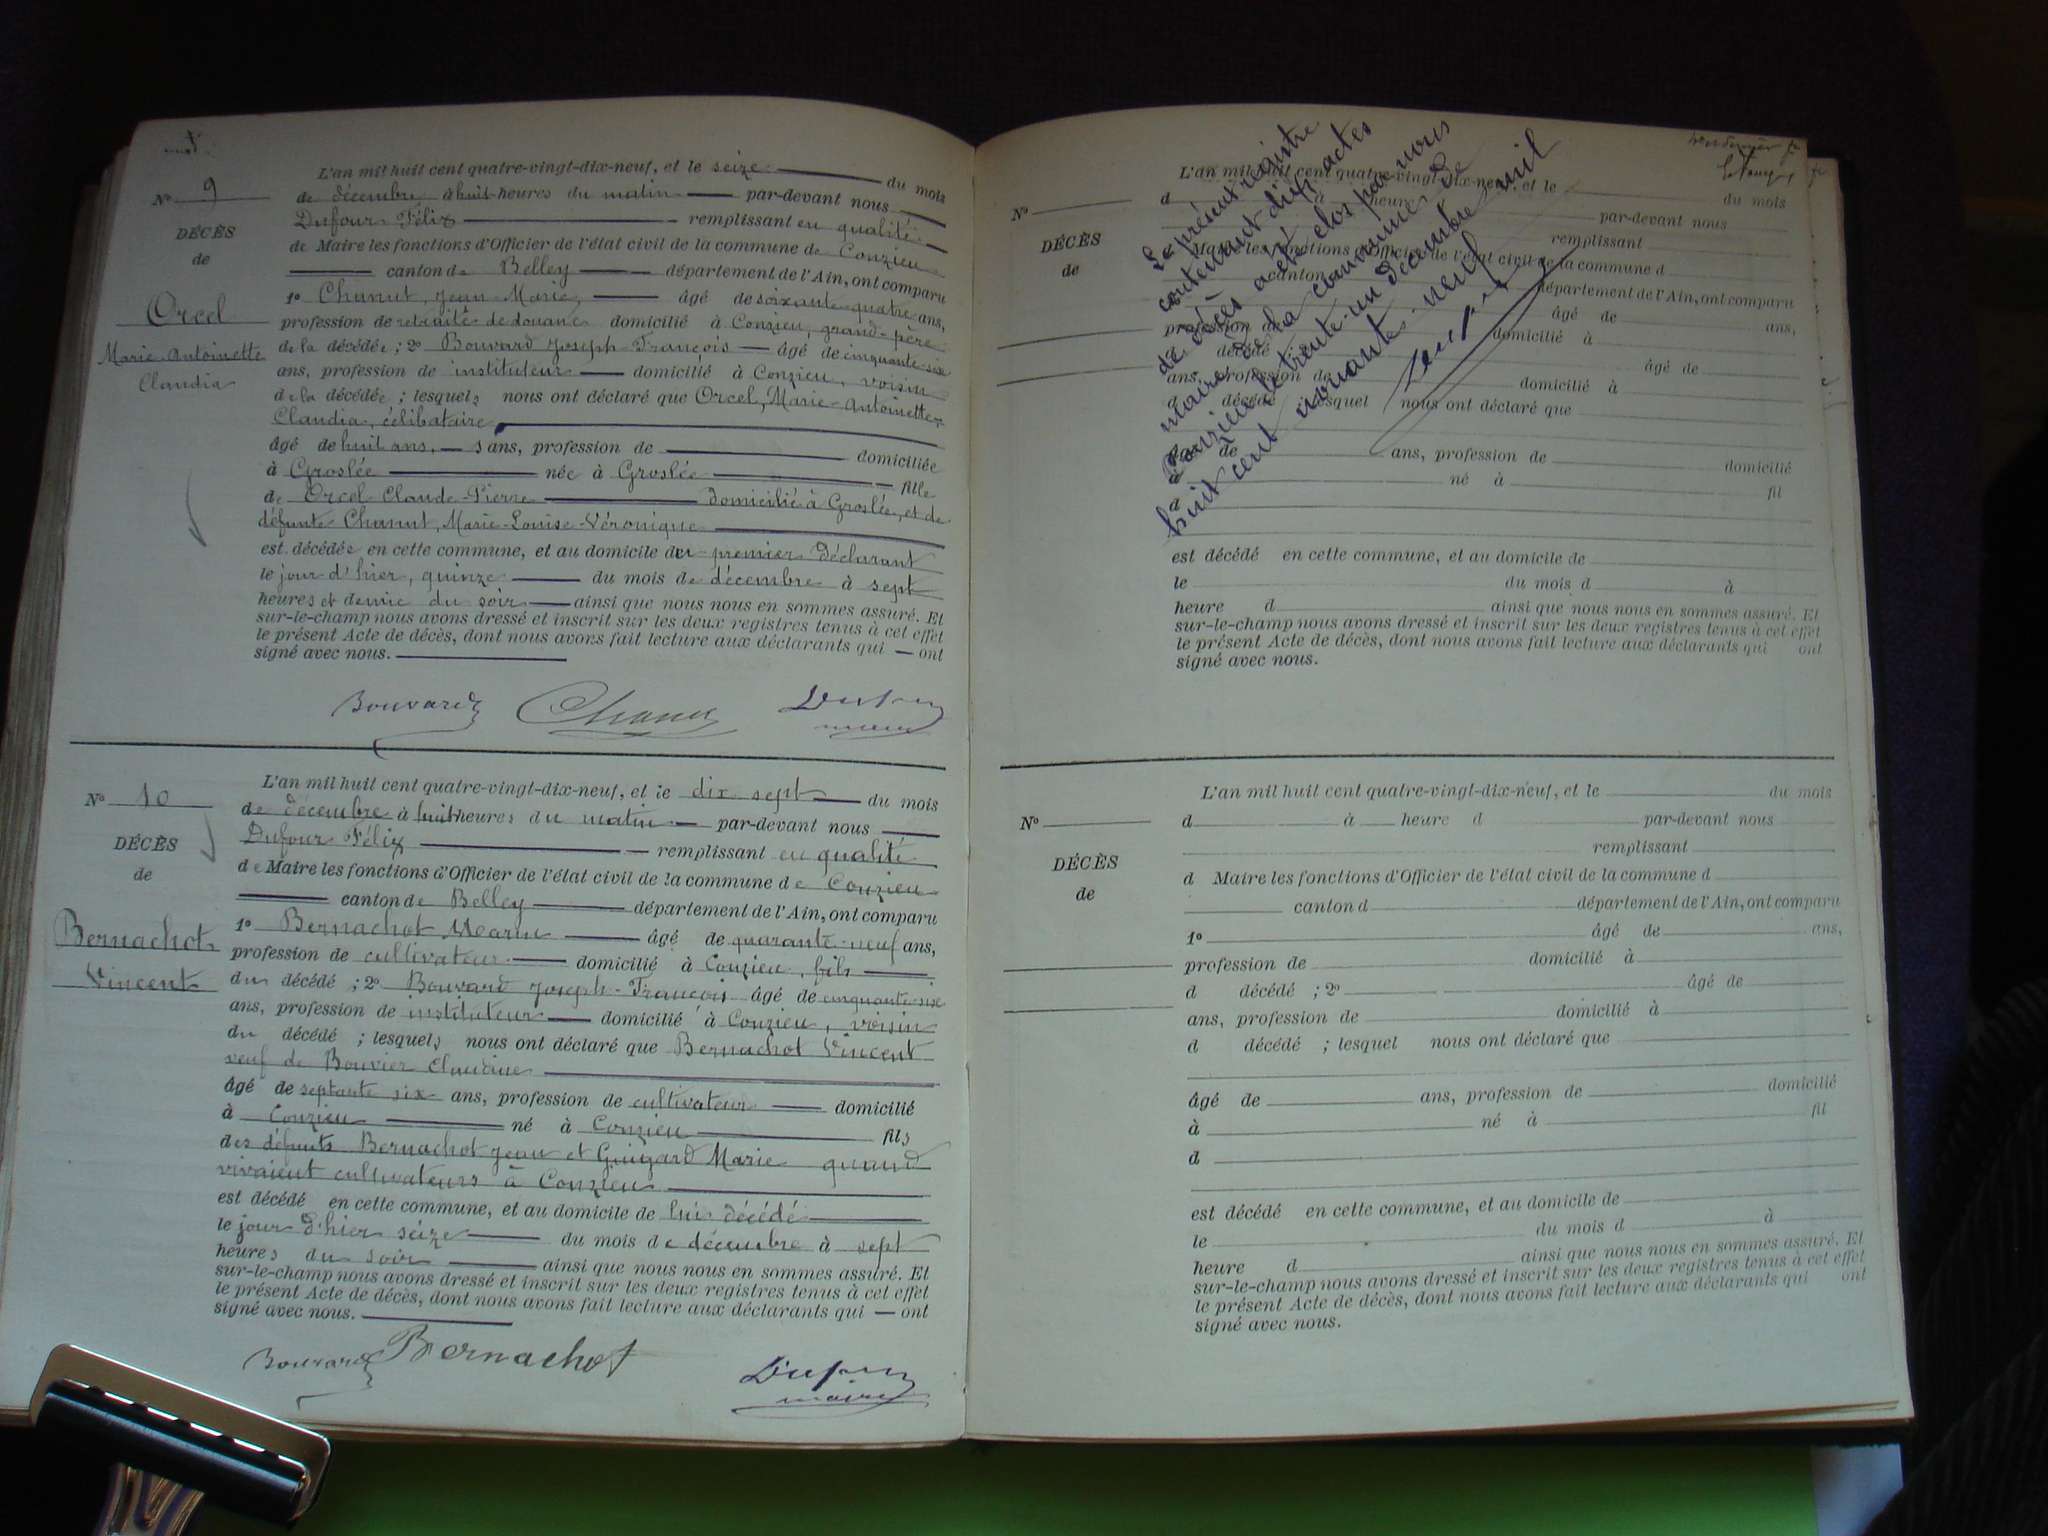 N° 9
DÉCÈS
de
Orcel
Marie-Antoinette
Claudia
L'an mil huit cent quatre-vingt-dix-neuf, et le seize du mois
de décembre à huit heures du matin par-devant nous
Dufour Félix remplissant en qualité
de Maire les fonctions d'Officier de l'état civil de la commune de Conzieu
canton de Belley département de l'Ain, ont comparu
1° Chanut, Jean-Marie, âgé de soixante-quatre ans,
profession de retraité de douane domicilié à Conzieu, grand-père
de la décédée ; 2° Bouvard Joseph-François âgé de cinquante-six
ans, profession de instituteur domicilié à Conzieu, voisin
de la décédée ; lesquels nous ont déclaré que Orcel, Marie-Antoinette-
Claudia, célibataire
âgé de huit ans, s ans, profession de domiciliée
à Groslée née à Groslée fille
de Orcel Claude-Pierre domicilié à Groslée, et de
défunte Chanut, Marie-Louise-Véronique
est décédée en cette commune, et au domicile du premier déclarant
le jour d'hier, quinze du mois de décembre à sept
heures et demie du soir ainsi que nous nous en sommes assuré. Et
sur-le-champ nous avons dressé et inscrit sur les deux registres tenus à cet effet
le présent Acte de décès, dont nous avons fait lecture aux déclarants qui ont
signé avec nous.
Bouvard Chanut Dufour
maire
N° 10
DÉCÈS
de
Bernachot
Vincent
L'an mil huit cent quatre-vingt-dix-neuf, et le dix sept du mois
de décembre à huit heures du matin par-devant nous
Dufour Félix remplissant en qualité
de Maire les fonctions d'Officier de l'état civil de la commune de Conzieu
canton de Belley département de l'Ain, ont comparu
1° Bernachot Marin âgé de quarante-neuf ans,
profession de cultivateur domicilié à Conzieu, fils
du décédé ; 2° Bouvard Joseph-François âgé de cinquante-six
ans, profession de instituteur domicilié à Conzieu, voisin
du décédé ; lesquels nous ont déclaré que Bernachot Vincent
veuf de Bouvier Claudine
âgé de septante six ans, profession de cultivateur domicilié
à Conzieu né à Conzieu fils
des défunts Bernachot Jean et Guigard Marie quand
vivaient cultivateurs à Conzieu
est décédé en cette commune, et au domicile de lui décédé
le jour d'hier seize du mois de décembre à sept
heures du soir ainsi que nous nous en sommes assuré. Et
sur-le-champ nous avons dressé et inscrit sur les deux registres tenus à cet effet
le présent Acte de décès, dont nous avons fait lecture aux déclarants qui ont
signé avec nous.
Bouvard Bernachot Dufour
maire
N°
DÉCÈS
de
L'an mil huit cent quatre-vingt-dix-neuf, et le du mois
d à heure par-devant nous
remplissant
Maire les fonctions d'Officier de l'état civil de la commune d
canton département de l'Ain, ont comparu
âgé de ans,
profession de domicilié à
décédé âgé de
ans, profession de domicilié à
d décédé lesquel nous ont déclaré que
de ans, profession de domicilié
à né à fil
d
est décédé en cette commune, et au domicile de
le du mois d à
heure d ainsi que nous nous en sommes assuré. Et
sur-le-champ nous avons dressé et inscrit sur les deux registres tenus à cet effet
le présent Acte de décès, dont nous avons fait lecture aux déclarants qui ont
signé avec nous.
Le présent registre
contenant dix actes
de décès a été clos par nous
maire de la commune de
Conzieu le trente-un décembre mil
huit cent nonante-neuf
N°
DÉCÈS
de
L'an mil huit cent quatre-vingt-dix-neuf, et le du mois
d à heure d par-devant nous
remplissant
d Maire les fonctions d'Officier de l'état civil de la commune d
canton d département de l'Ain, ont comparu
1° âgé de ans,
profession de domicilié à
d décédé ; 2° âgé de
ans, profession de domicilié à
d décédé ; lesquel nous ont déclaré que
âgé de ans, profession de domicilié
à né à fil
d
est décédé en cette commune, et au domicile de
le du mois d à
heure d ainsi que nous nous en sommes assuré. Et
sur-le-champ nous avons dressé et inscrit sur les deux registres tenus à cet effet
le présent Acte de décès, dont nous avons fait lecture aux déclarants qui ont
signé avec nous.